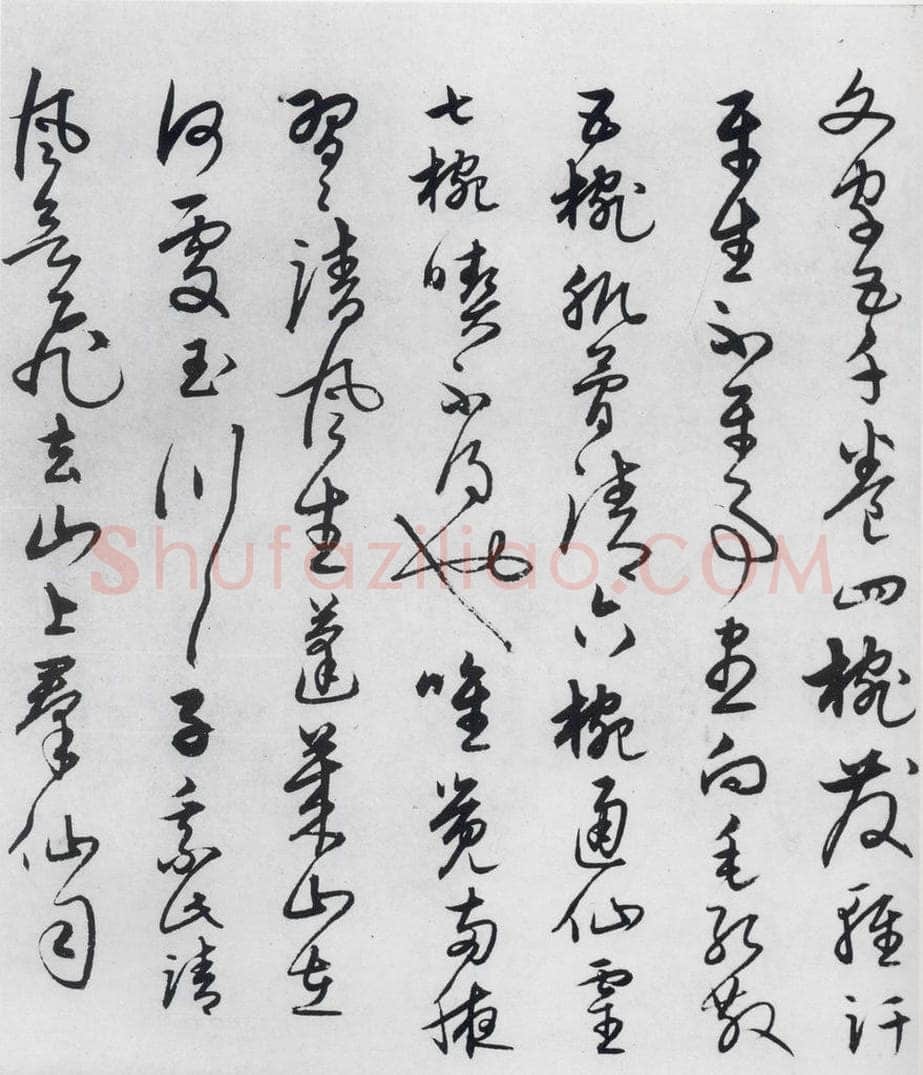 文字五千卷四椀發輕汗
平生不平事盡向毛孔散
五椀肌骨清六椀通仙靈
七椀喫不得也唯覺兩腋
習〻清風生蓬萊山在
何處玉川子乘此清
風飛去山上羣仙司
Shufaziliao.COM